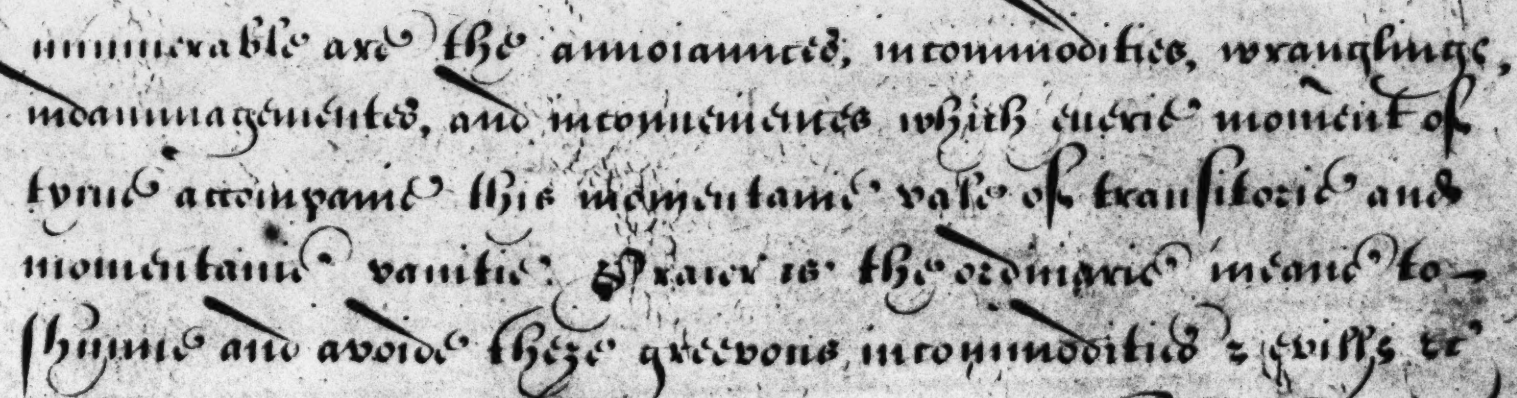 nnumerable are the annoiaunces, incommodities, wranglings,
indammagementes, and inconueniences which euerie moment of
tyme accompanie this momentanie vale of transitorie and
momentanie vanitie. Praier is the ordinarie meane to
shunne and avoide theze greevous incommodities & evills &c